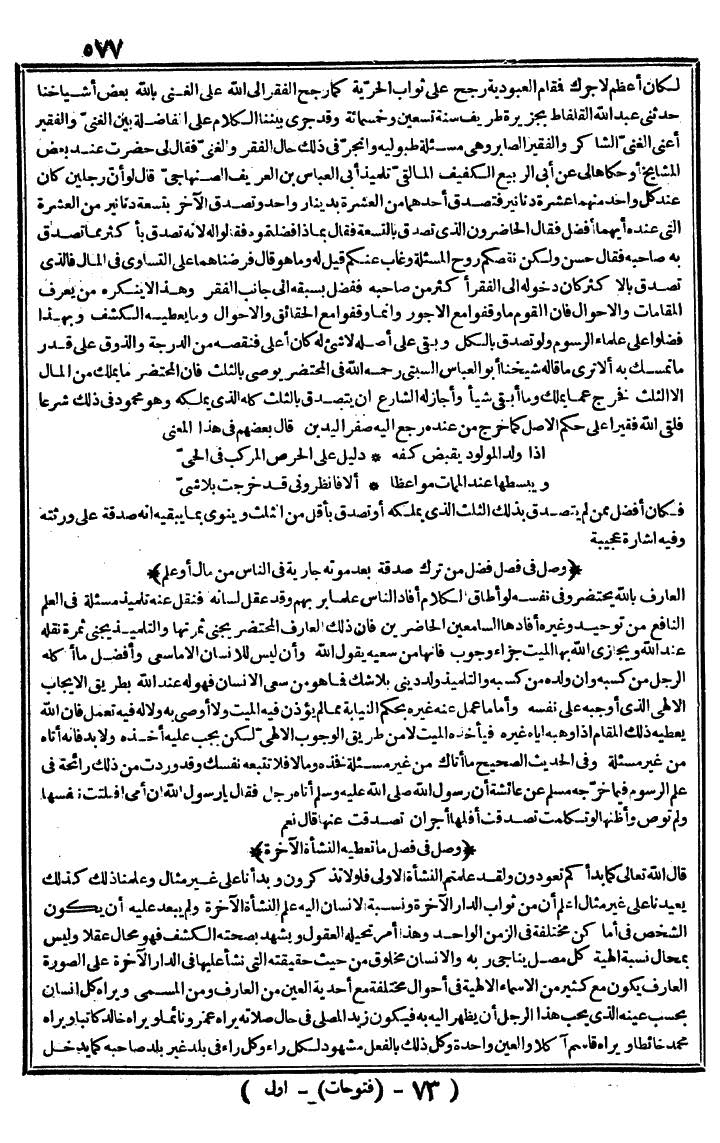 ٥٧٧
لكان أعظم لاجرك فقام العبودية رجح على ثواب الحرّية كما رجح الفقر الى الله على الغنى بالله بعض أشياخنا
حدثنى عبد الله القلفاط بجزيرة طريف سنة تسعين وخمسمائة وقد جرى بيننا الكلام على المفاضلة بين الغنىّ والفقير
أعنى الغنىّ الشاكر والفقير الصابر وهى مسئلة طبولية وانجرّ فى ذلك حال الفقر والغنىّ فقال لى حضرت عند بعض
المشايخ أو حكاها لى عن أبى الربيع الكفيف المالقىّ تلميذ أبى العباس بن العريف الصنهاجىّ قال لو أن رجلين كان
عند كل واحد منهما عشرة دنانير فتصدق أحدهما من العشرة بدينار واحد وتصدق الآخر بتسعة دنانير من العشرة
التى عنده أيهما أفضل فقال الحاضرون الذى تصدق بالتسعة فقال بماذا فضلتموه فقالوا له لانه تصدق بأكثر مما تصدق
به صاحبه فقال حسن ولكن نقصكم روح المسئلة وغاب عنكم قيل له وما هو قال فرضناهما على التساوى فى المال فالذى
تصدق بالاكثر كان دخوله الى الفقر أكثر من صاحبه ففضل بسبقه الى جانب الفقر وهذا لاينكره من يعرف
المقامات والاحوال فان القوم ما وقفوا مع الاجور وانما وقفوا مع الحقائق والاحوال وما يعطيه الكشف وبهذا
فضلوا على علماء الرسوم ولو تصدق بالكل وبقى على أصله لاشئ له كان أعلى فنقصه من الدرجة والذوق على قدر
ما تمسك به ألا ترى ما قاله شيخنا أبو العباس السبتى رحمه الله فى المحتضر يوصى بالثلث فان المحتضر ما يملك من المال
الا الثلث فخرج عما يملك وما أبقى شيأ وأجاز له الشارع ان يتصدق بالثلث كله الذى يملكه وهو محمود فى ذلك شرعا
فلقى الله فقيرا على حكم الاصل كما خرج من عنده رجع اليه صفر اليدين قال بعضهم فى هذا المعنى
اذا ولد المولود يقبض كفه * دليل على الحرص المركب فى الحىّ
ويبسطها عند الممات مواعظا * ألا فانظرونى قد خرجت بلا شىّ
فكان أفضل ممن لم يتصدق بذلك الثلث الذى يملكه أو تصدق بأقل من الثلث وينوى بما يبقيه انه صدقة على ورثته
وفيه اشارة عجيبة
﴿وصل فى فصل فضل من ترك صدقة بعد موته جارية فى الناس من مال أو علم﴾
العارف بالله يحتضر وفى نفسه لو أطاق الكلام أفاد الناس علما بربهم وقد عقل لسانه فنقل عنه تلميذ مسئلة فى العلم
النافع من توحيد وغيره أفادها السامعين الحاضرين فان ذلك العارف المحتضر يجنى ثمرتها والتلميذ يجنى ثمرة نقله
عند الله ويجازى الله بها الميت جزاء وجوب فانها من سعيه يقول الله وأن ليس للانسان الا ما سعى وأفضل ما أكله
الرجل من كسبه وان ولده من كسبه والتلميذ ولد دينى بلا شك فما هو من سعى الانسان فهو له عند الله بطريق الايجاب
الالهى الذى أوجبه على نفسه وأما ما عمل عنه غيره بحكم النيابة مما لم يؤذن فيه الميت ولا أوصى به ولا له فيه تعمل فان الله
يعطيه ذلك المقام اذا وهبه اياه غيره فيأخذه الميت لا من طريق الوجوب الالهىّ لكن يجب عليه أخذه ولابد فانه أتاه
من غير مسئلة وفى الحديث الصحيح ما أتاك من غير مسئلة فخذه ومالا فلا تتبعه نفسك وقد وردت من ذلك رائحة فى
علم الرسوم فيما خرّجه مسلم عن عائشة أن رسول الله صلى الله عليه وسلم أتاه رجل فقال يا رسول الله ان أمى افتلتت نفسها
ولم توص وأظنها لو تكلمت تصدقت أفلها أجر ان تصدقت عنها قال نعم
﴿وصل فى فصل ما تعطيه النشأة الآخرة﴾
قال الله تعالى كما بدأكم تعودون ولقد علمتم النشأة الاولى فلولا تذكرون وبدأنا على غير مثال وعلمنا ذلك كذلك
يعيدنا على غير مثال اعلم أن من ثواب الدار الآخرة ونسبة الانسان اليه علم النشأة الآخرة ولم يبعد عليه أن يكون
الشخص فى أماكن مختلفة فى الزمن الواحد وهذا أمر تحيله العقول ويشهد بصحته الكشف فهو محال عقلا وليس
بمحال نسبة الهية كل مصل يناجى ربه والانسان مخلوق من حيث حقيقته التى نشأ عليها فى الدار الآخرة على الصورة
العارف يكون مع كثير من الاسماء الالهية فى أحوال مختلفة مع أحدية العين من العارف ومن المسمى ويراه كل انسان
بحسب عينه الذى يحب هذا الرجل أن يظهر اليه به فيكون زيد المصلى فى حال صلاته يراه عمرو نائما ويراه خالد كاتبا ويراه
محمد خائطا ويراه قاسم آكلا والعين واحدة وكل ذلك بالفعل مشهود لكل راء وكل راء فى بلد غير بلد صاحبه كما يدخل
( ٧٣ - (فتوحات) - اول )